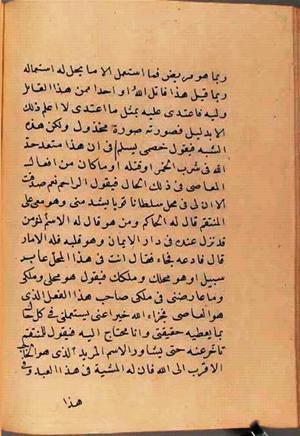 وبما هو مريض فما استعمل الا ما يحل له استعماله
وبما قيل هذا قاتل الله او احدا ممن هذا القاتل
وليه فاعتدى عليه بمثل ما اعتدى لا اعلم ذلك
الا بدليل فصورته صورة مخذول ولكن هذه
الشبه فيقول خصمي يسلم في ان هذا متعد حد
الله في شرب الخمر وقتله او ما كان من افعال
المعاصي في ذلك الحال فيقول الراحم نعم صدقت
الا ان لي في محل سلطانا قويا يشد مني وهو معي على
المنتقم قال له الحاكم ومن هو قال له الاسم المؤمن
قد نزل عنده في دار الايمان وهو قلبه فله الامان
قال فادعه فجاء فقال انت في هذا المحل عابر
سبيل او هو محلك وملكك فيقول هو محلي وملكي
وما عارضني في ملكي صاحب هذا الفعل الذي
هو العاصي فجزاه الله خيرا عني يستعملني في كل
بما يعطيه حقيقتي وانا محتاج اليه فيقول للمنتقم
تاخر عنه حتى يشاور الاسم المريد الذي هو الحاجب
الاقرب الى الله فان له المشية في هذا العبد وفي
هذا